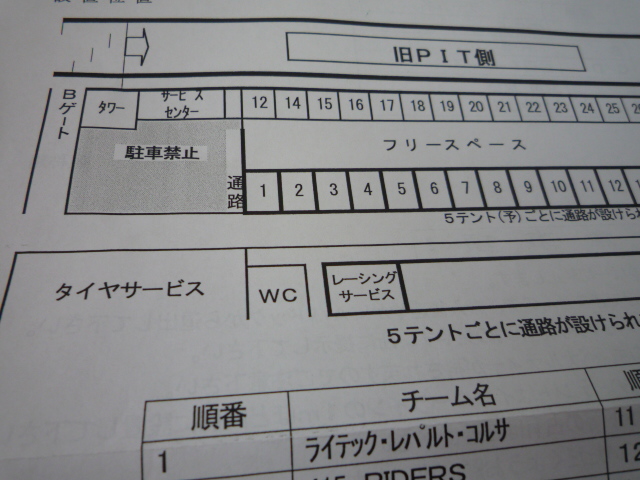 旧ＰＩＴ側
Bゲート
タワー
サービス
センター
12 14 15 16 17 18 19 20 21 22 23 24 25
駐車禁止
フリースペース
通路
1 2 3 4 5 6 7 8 9 10 11 12
５テント(予)ごとに通路が設けら
タイヤサービス
ＷＣ
レーシング
サービス
５テントごとに通路が設けられ
順番 チーム名
1 ライテック・レパルト・コルサ 11
RIDERS 12